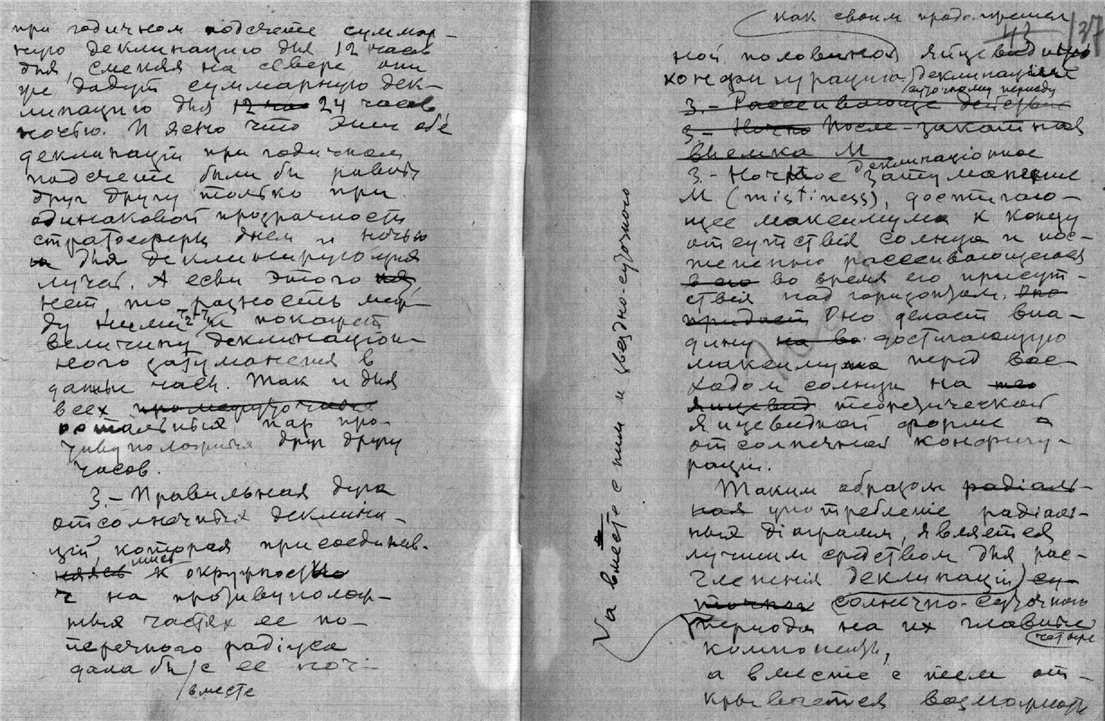 при годичном подсчете суммар-
ную деклинацию для 12 часов
дня, сменяя на севере они
же дадут суммарную дек-
линацию для 12 24 часов
ночью. И ясно что эти обе
деклинаціи при годичном
подсчете были бы равны
друг другу только при
одинаковой прозрачности
стратосферы днем и ночью
для деклинирующих
лучей. А если этого
нет то разность меж-
ду ними и покажет
величину деклинаціон-
ного затуманения в
данные часы. Так и для
всех промежуточных
остальных пар про-
тивуположных друг другу
часов.
3.- Правильная дуга
отсолнечных деклина-
цій, которая присоединив-
шись к окружности
на противуполож-
ных частях ее по-
перечного радіуса
дала бы с ее ноч-
вместе
Va вместе с ним и звездно-суточного
как своим продолжением
43 137
ной половиной яйцевидную
конфигурацию деклинацій
суточному періоду
3.- Рассеивающее действие
3.- Ночно после-закатная
выемка М
деклинаціонное
3.- Ночное затуманение
М (mistiness), достигаю-
щее максимума к концу
отсутствія солнца и пос-
тепенно рассеивающееся
в его во время его присут-
ствія над горизонтом.
придает Оно делает впа-
дину на во достигающую
максимума перед вос-
ходом солнца на
яйцевид теоретической
яйцевидной форме
отсолнечной конфигу-
раціи.
Таким образом радіаль-
ная употребленіе радіаль-
ных діаграмм, является
лучшим средством для рас-
членения деклинацій су-
точных солнечно-суточного
періода на их главные
четыре
компоненты,
а вместе с тем от-
крывается возможность